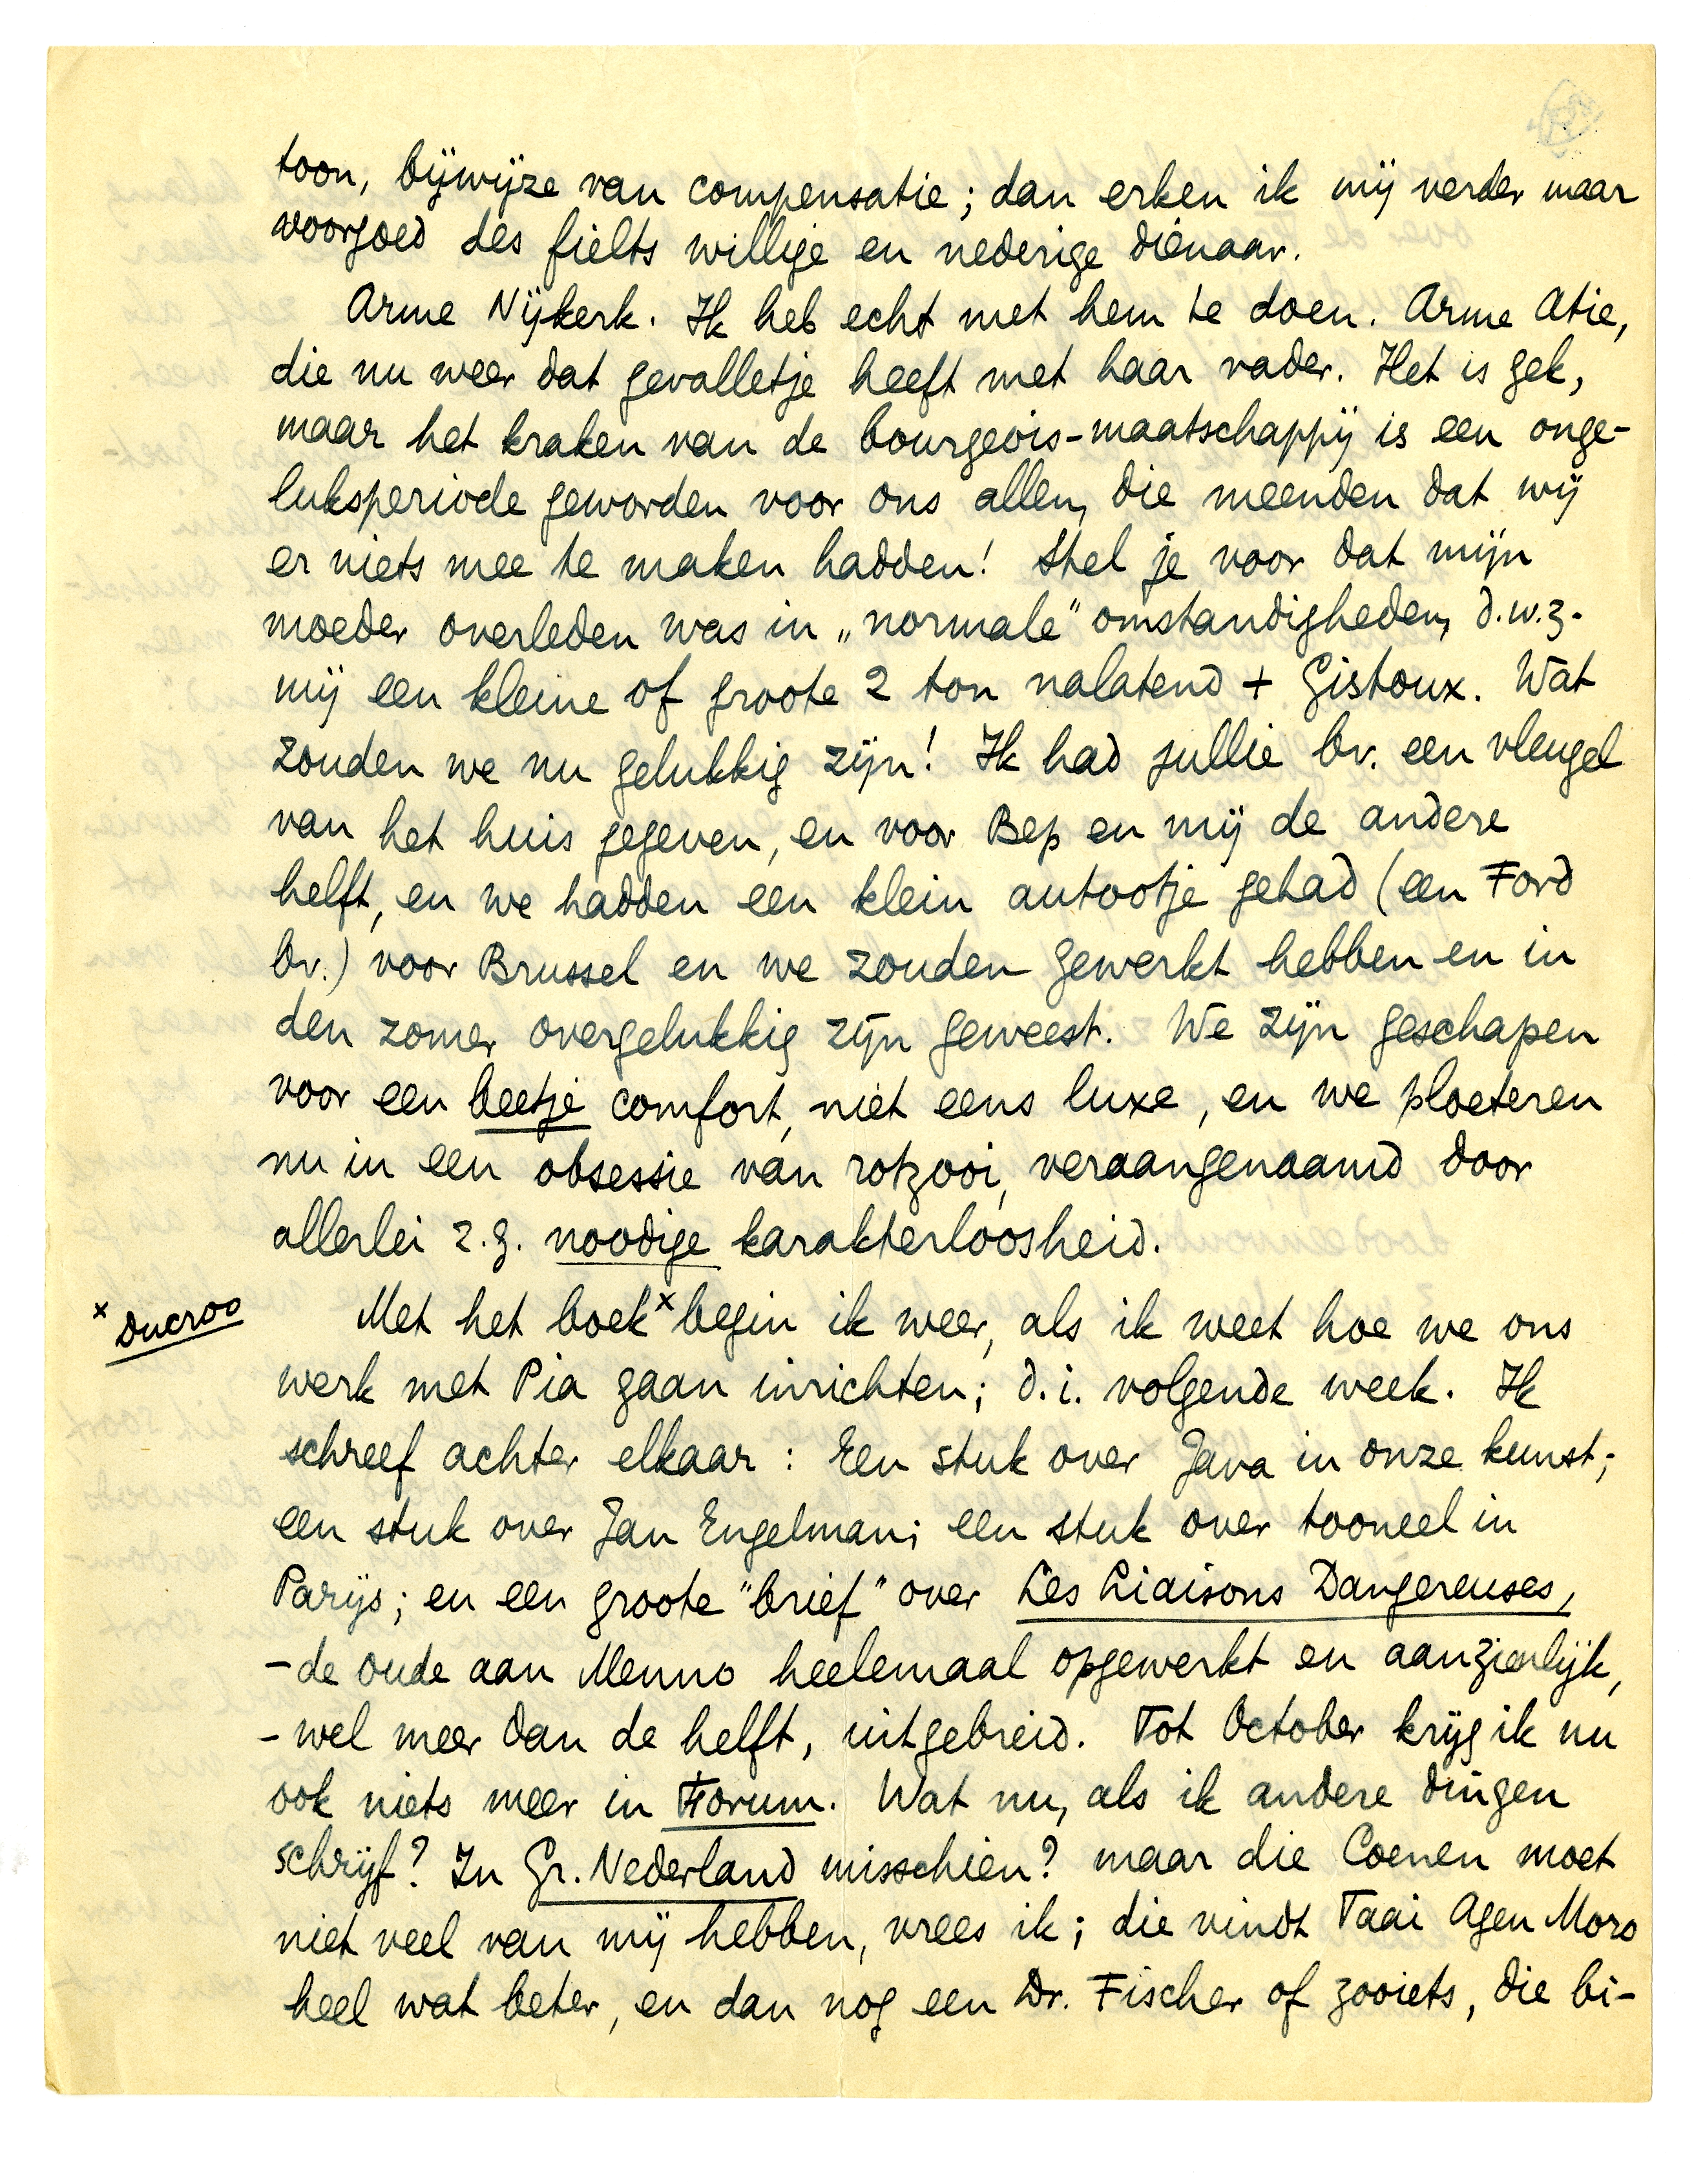 toon, bijwijze van compensatie; dan erken ik mij verder maar
voorgoed des fielts willige en nederige dienaar.
Arme Nijkerk. Ik heb echt met hem te doen. Arme Atie,
die nu weer dat gevalletje heeft met haar vader. Het is gek,
maar het kraken van de bourgeois-maatschappij is een onge-
luksperiode geworden voor ons allen, die meenden dat wij
er niets mee te maken hadden! Stel je voor dat mijn
moeder overleden was in „normale" omstandigheden, d.w.z.
mij een kleine of groote 2 ton nalatend + Gistoux. Wat
zouden we nu gelukkig zijn! Ik had jullie bv. een vleugel
van het huis gegeven, en voor Bep en mij de andere
helft, en we hadden een klein autootje gehad (een Ford
bv.) voor Brussel en we zouden gewerkt hebben en in
den zomer overgelukkig zijn geweest. We zijn geschapen
voor een beetje comfort, niet eens luxe, en we ploeteren
nu in een obsessie van rotzooi, veraangenaamd door
allerlei z.g. noodige karakterloosheid.
Met het boek x begin ik weer, als ik weet hoe we ons
x Ducroo
werk met Pia gaan inrichten; d.i. volgende week. Ik
schreef achter elkaar: Een stuk over Java in onze kunst;
een stuk over Jan Engelman; een stuk over tooneel in
Parijs; en een groote "brief" over Les Liaisons Dangereuses,
- de oude aan Menno heelemaal opgewerkt en aanzienlijk,
- wel meer dan de helft, uitgebreid. Tot October krijg ik nu
ook niets meer in Forum. Wat nu, als ik andere dingen
schrijf? In Gr. Nederland misschien? maar die Coenen moet
niet veel van mij hebben, vrees ik; die vindt Taai Agen Moro
heel wat beter, en dan nog een Dr. Fischer of zooiets, die bi-